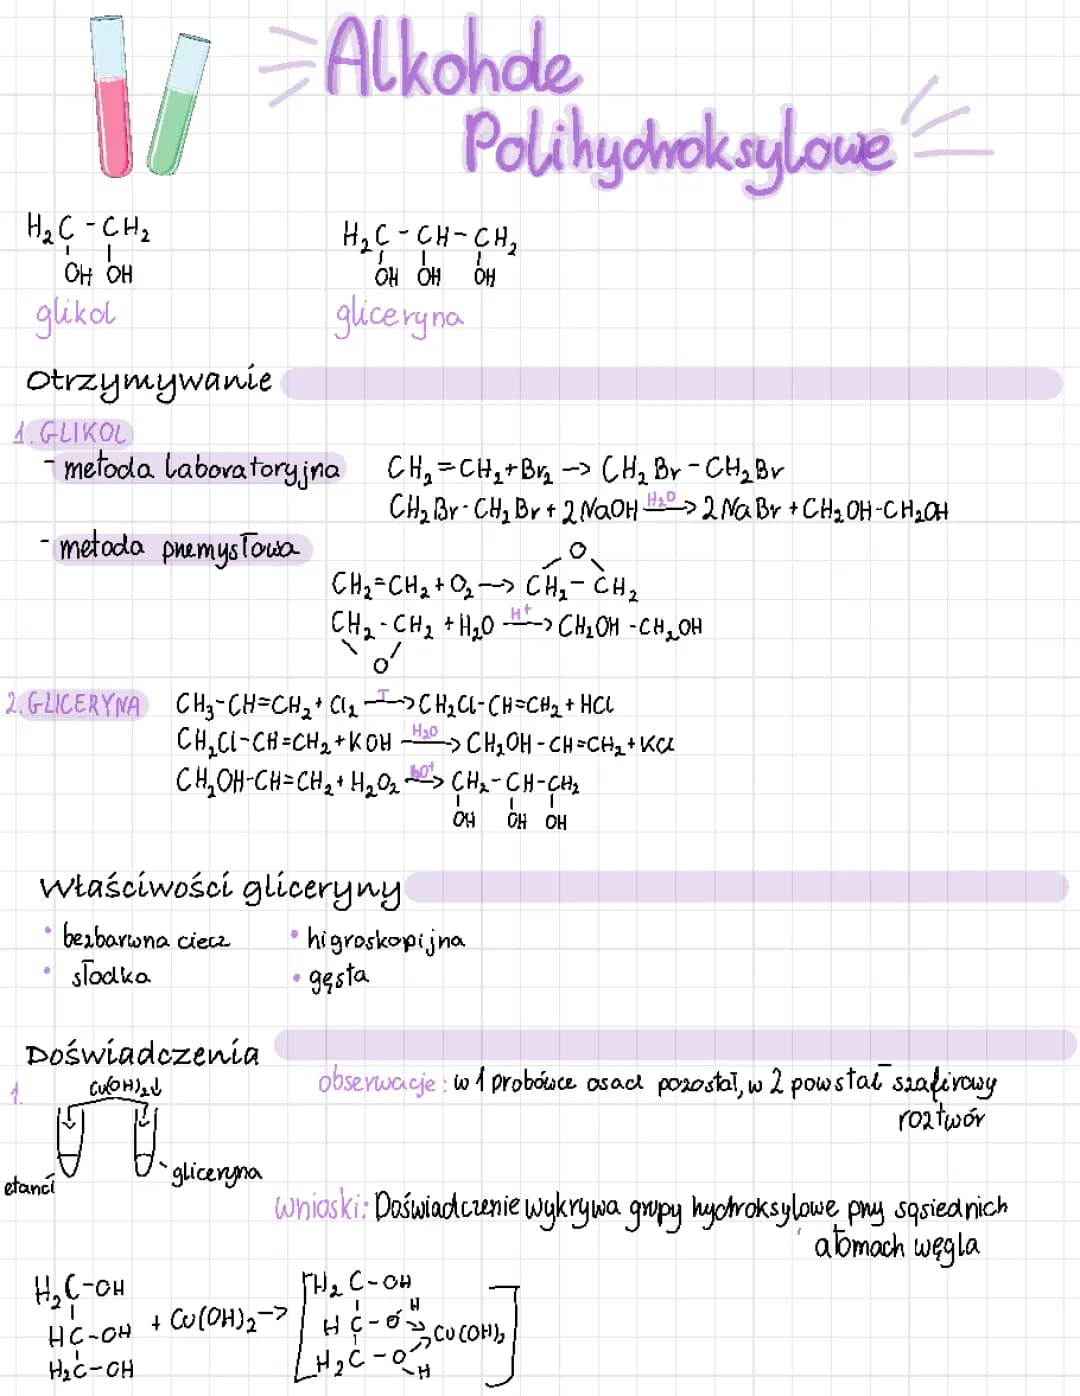 Alkohole
Polihydroksylowe
H₂C - CH₂
OH OH
glikol
H₂C - CH - CH₂
OH OH OH
gliceryna
Otrzymywanie
1. GLIKOL
- metoda laboratoryjna
CH₂=CH₂ + Br₂ -> CH₂Br - CH₂Br
CH₂Br - CH₂Br + 2NaOH H₂O -> 2NaBr + CH₂OH-CH₂OH
- metoda przemysłowa
O
CH₂=CH₂ + O₂ -> CH₂ - CH₂
CH₂ - CH₂ + H₂O H⁺ -> CH₂OH - CH₂OH
O
2. GLICERYNA
CH₃-CH=CH₂ + Cl₂ T -> CH₂Cl-CH=CH₂ + HCl
CH₂Cl-CH=CH₂ + KOH H₂O -> CH₂OH-CH=CH₂ + KCl
CH₂OH-CH=CH₂ + H₂O₂ -> CH₂-CH-CH₂
OH OH OH
Właściwości gliceryny
• bezbarwna ciecz
• słodka
• higroskopijna
• gęsta
Doświadczenia
1.
Cu(OH)₂↓
etanol
gliceryna
obserwacje: w 1 probówce osad pozostał, w 2 powstał szafirowy
roztwór
wnioski: Doświadczenie wykrywa grupy hydroksylowe przy sąsiednich
atomach węgla
H₂C-OH
HC-OH + Cu(OH)₂ ->
H₂C-OH
H₂C-OH
H
HC-O
Cu(OH)₂
H₂C-O
H